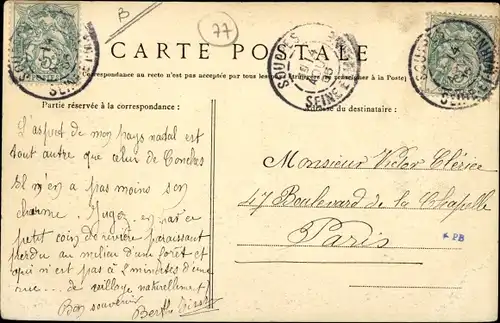 B
77
CARTE POSTALE
SOUPPES
SEINE ET M
Correspondance au recto n'est pas acceptée par tous les
à la Poste)
Partie réservée à la correspondance :
du destinataire :
L'aspect de mon pays natal est
tout autre que celui de Conches
Il n'en a pas moins son
charme. Jugez en par ce
petit coin de rivière paraissant
perdu au milieu d'une forêt et
qui n'est pas à 2 minutes d'une
rue --- de village naturellement !
Bon souvenir
Berthe
Monsieur Victor Clérice
47 Boulevard de la Chapelle
Paris
PB